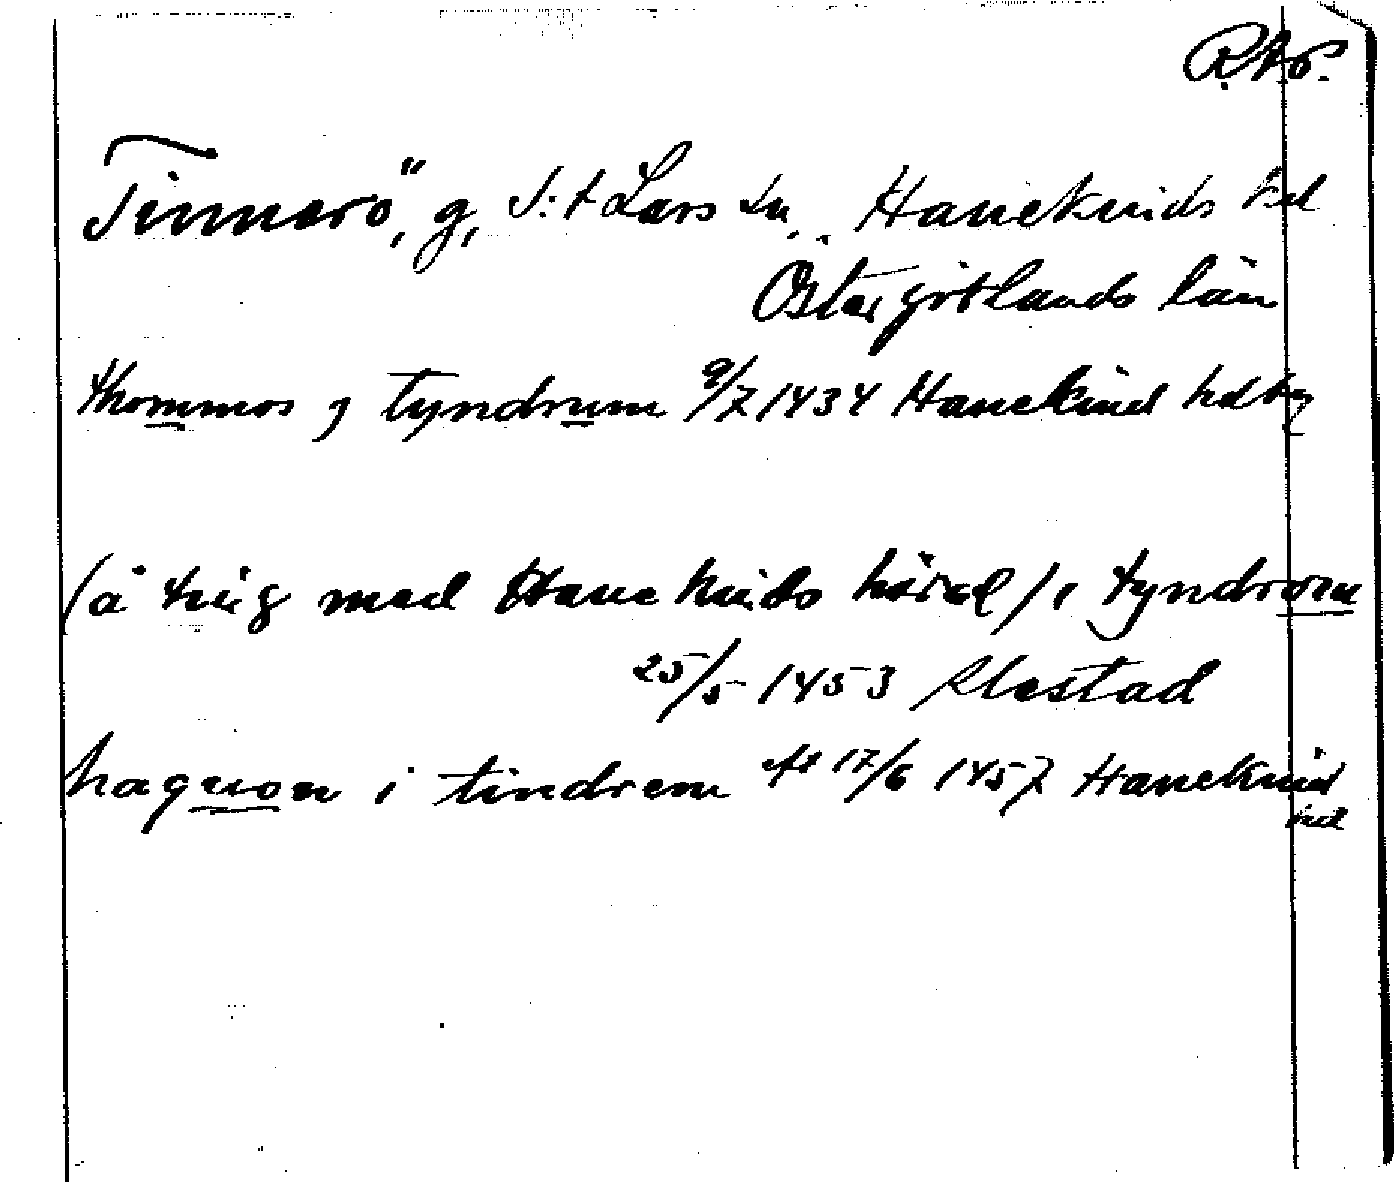 RAp.
Tinnerö, g, S:t Lars sn, Hanekinds hd
Östergötlands län
thommos j tyndrum 9/7 1434 Hanekind hdtg
(å ting med Hanekinds härad), tyndrom
25/5 1453 Slestad
haquon i tindrem afs 17/6 1457 Hanekind
hd